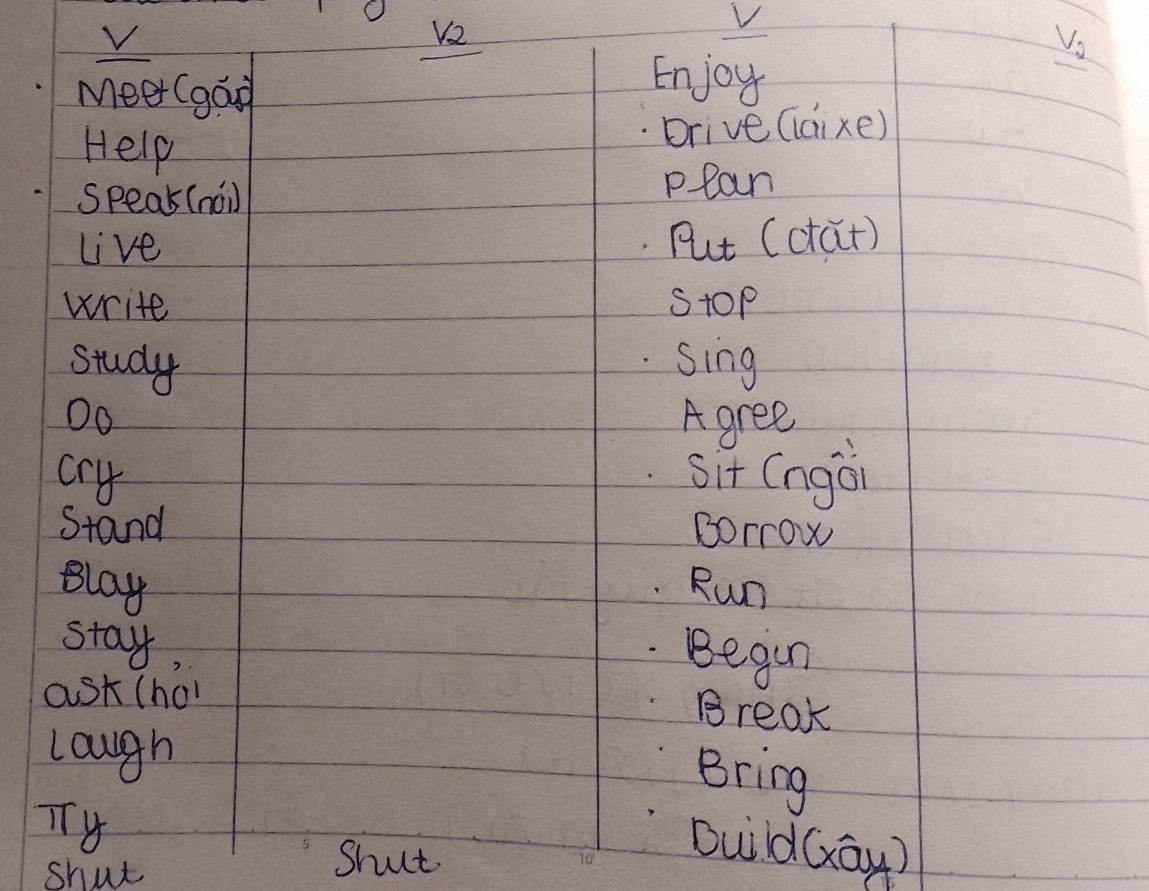 V V2 V V2
Meet (gặp) Enjoy
Help Drive (lái xe)
Speak (nói) Plan
Live Put (đặt)
Write Stop
Study Sing
Do Agree
Cry Sit (ngồi
Stand Borrow
Play Run
Stay Begin
ask (hỏi Break
Laugh Bring
Try Build (xây)
Shut Shut
5 10